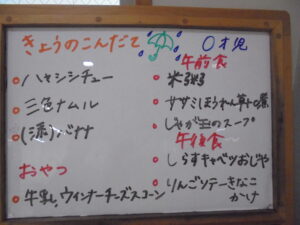 きょうのこんだて
ハヤシシチュー
三色ナムル
(添)バナナ
おやつ
牛乳、ウインナーチーズスコーン
0才児
午前食
米粥
ササミほうれん草の煮
じゃが玉のスープ
午後食
しらすキャベツおじや
りんごソテーきなこ
かけ